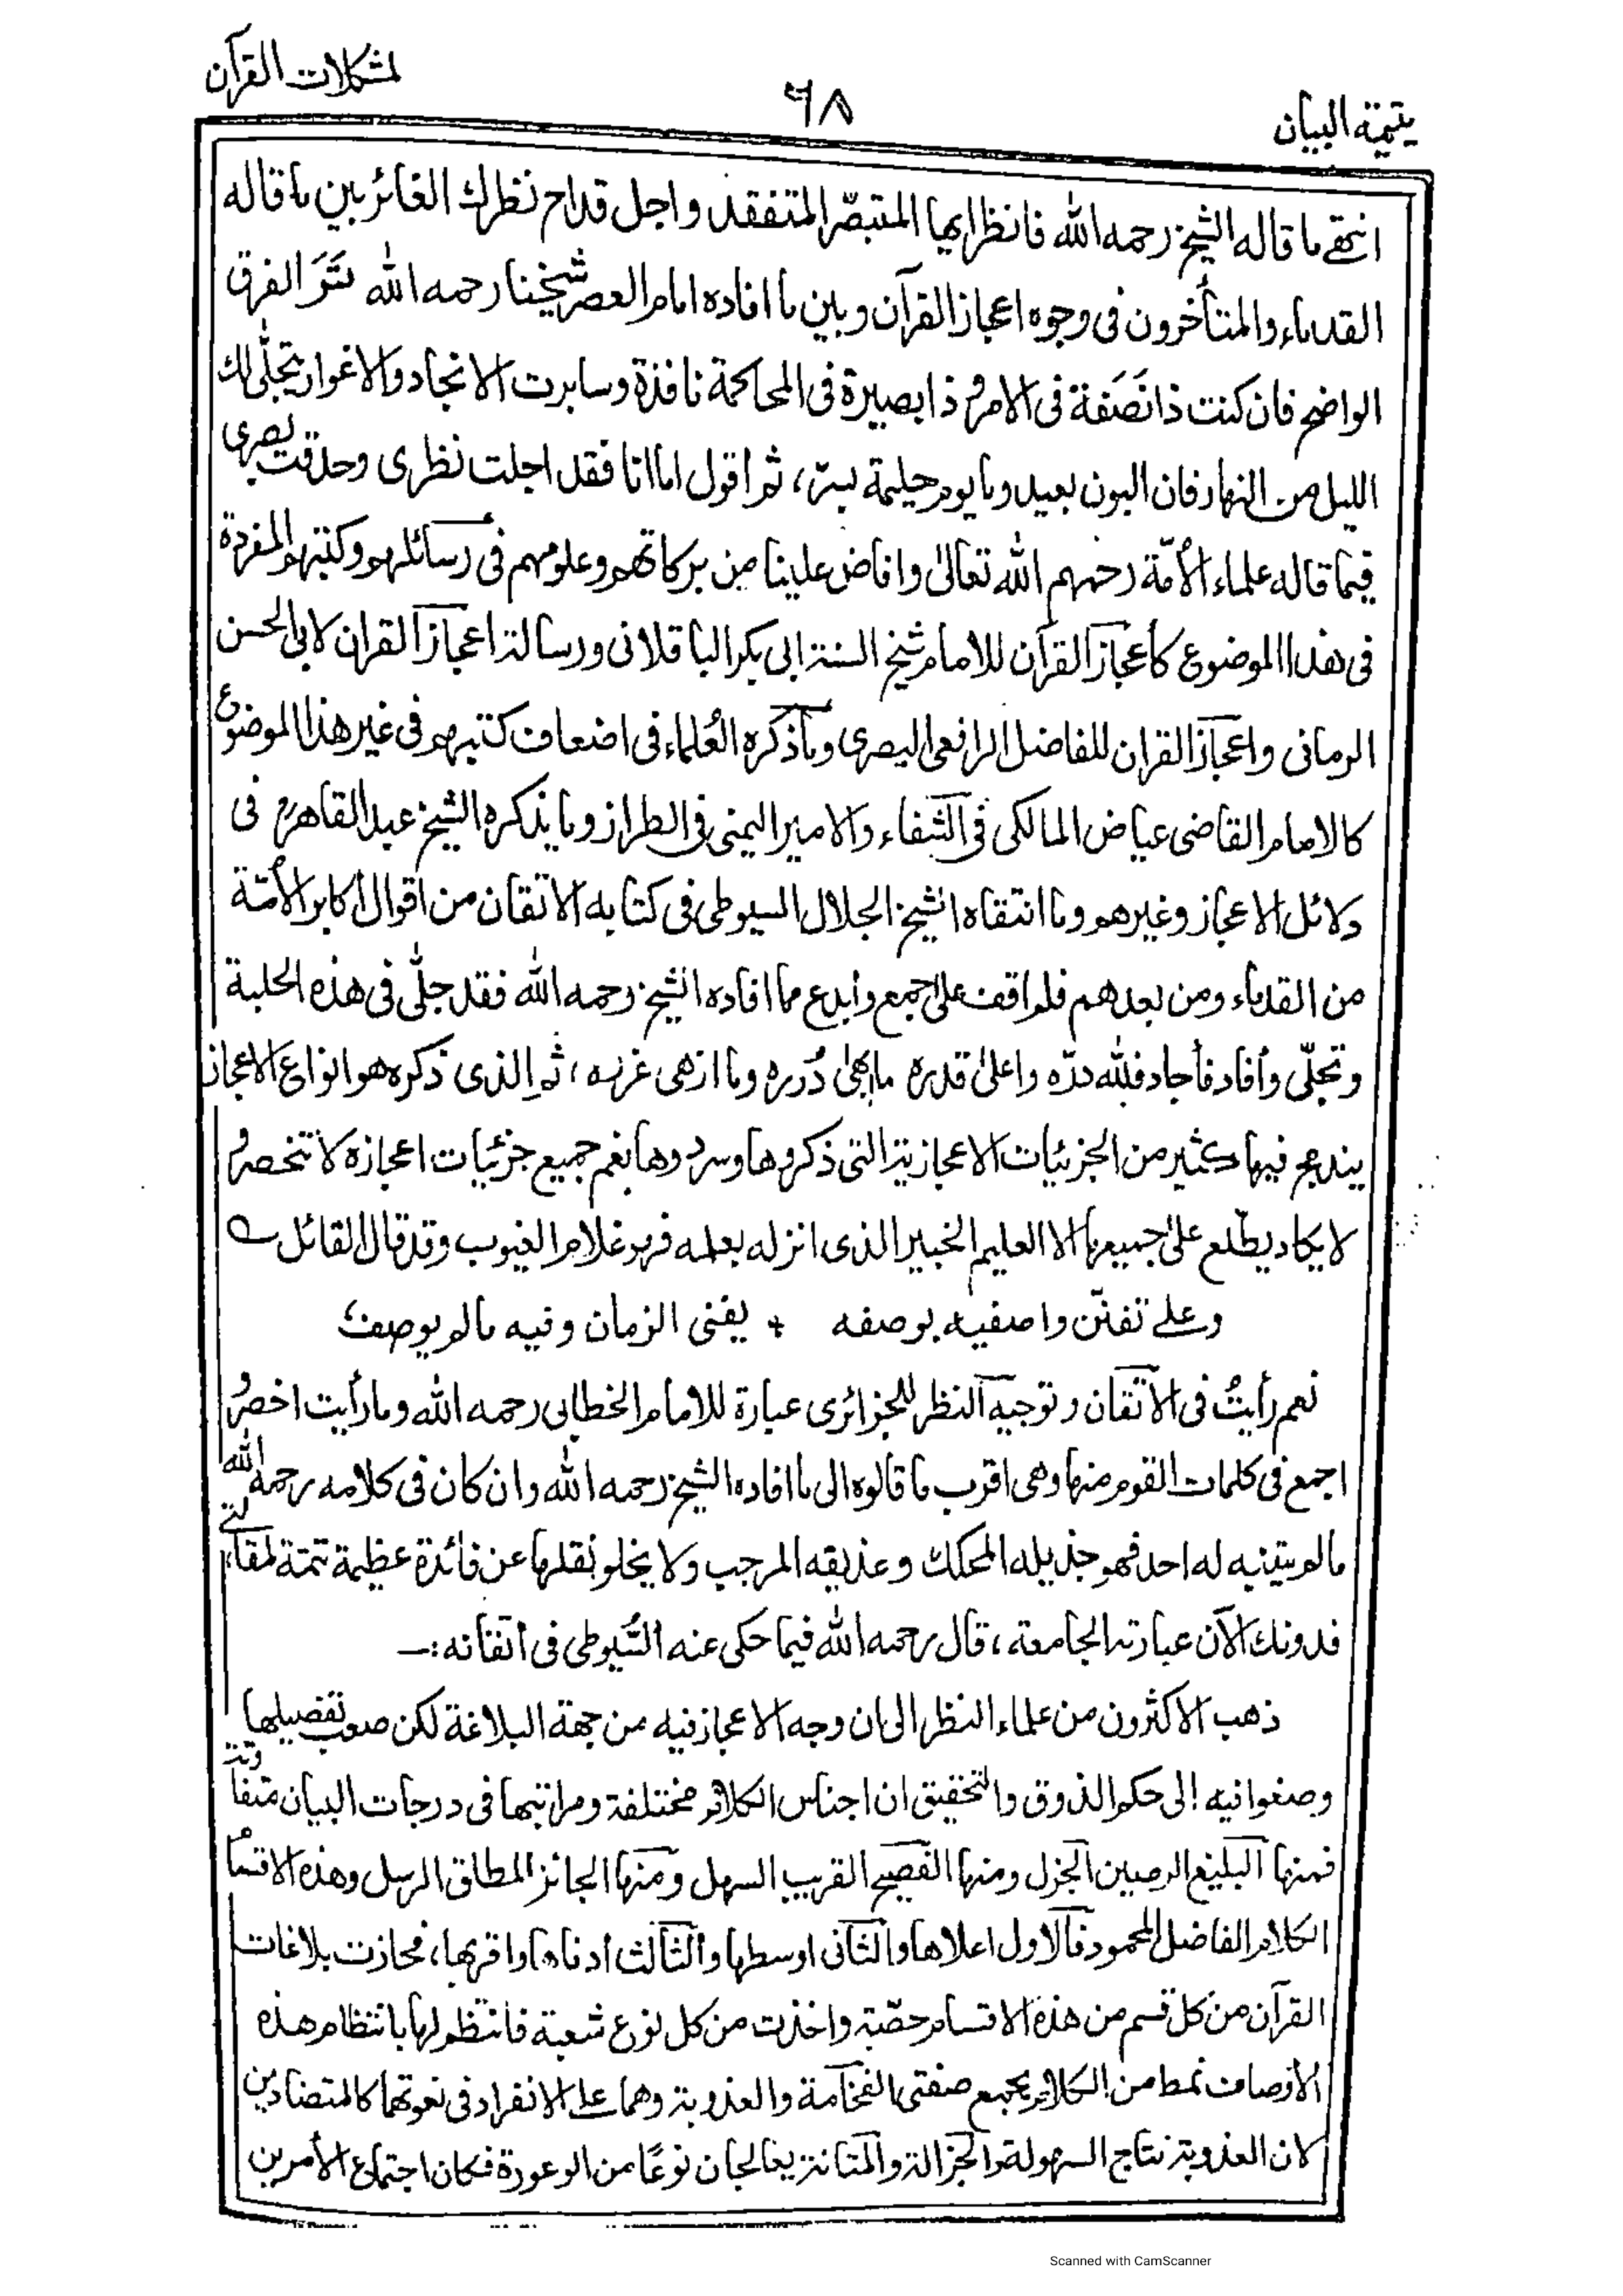 لمشكلات القرآن
٦٨
يتيمة البيان
انتهى ما قاله الشيخ رحمه الله فانظر ايها المتبصّر المتفقد واجل قداح نظرك الغائر بين ما قاله
القدماء والمتأخرون فى وجوه اعجاز القرآن وبين ما افاده امام العصر شيخنا رحمه الله تَرَ الفرق
الواضح فان كنت ذا نَصَفة فى الامر و ذا بصيرة فى المحاكمة نافذة وسابرت الانجاد والاغوار يتجلّى لك
الليل من النهار فان البون بعيد وما يوم حليمة بسرّ، ثم اقول اما انا فقد اجلت نظرى وحدقت بصرى
فيما قاله علماء الأمّة رحمهم الله تعالىٰ وافاض علينا من بركاتهم وعلومهم فى رسائلهم وكتبهم المفردة
فى هذا الموضوع كأعجاز القرآن للامام شيخ السنة ابى بكر الباقلانى ورسالة اعجاز القران لابى الحسن
الرمانى واعجاز القران للفاضل الرافعى المصرى وما ذكره العُلماء فى اضعاف كتبهم فى غير هذا الموضوع
كالامام القاضى عياض المالكى فى الشفاء والامير اليمنى فى الطراز وما يذكره الشيخ عبد القاهر فى
دلائل الاعجاز وغيرهم وما انتقاه الشيخ الجلال السيوطى فى كتابه الاتقان من اقوال اكابر الأمّة
من القدماء ومن بعدهم فلم اقف على اجمع وابدع مما افاده الشيخ رحمه الله فقد جلّى فى هذه الحلبة
وتجلّى وأفاد فأجاد فللّه درّه واعلىٰ قدره ما ابهىٰ دُرره وما ازهى غرره، ثم الذى ذكره هو انواع الاعجاز
يندمج فيها كثير من الجزئيات الاعجازية التى ذكروها وسردوها نعم جميع جزئيات اعجازه لا تنحصر و
لا يكاد يطّلع علىٰ جميعها الا العليم الخبير الذى انزله بعلمه فهو علام الغيوب وقد قال القائل
وعلى تفنّن واصفيه بوصفه + يفنى الزمان وفيه مالم يوصف
نعم رأيتُ فى الاتقان وتوجيه النظر للجزائرى عبارة للامام الخطابى رحمه الله وما رأيت اخصر و
اجمع فى كلمات القوم منها وهى اقرب ما قالوه الى ما افاده الشيخ رحمه الله وان كان فى كلامه رحمه الله
مالم يتنبه له احد فهو جذيله المحكك وعذيقه المرجب ولا يخلو نقلها عن فائدة عظيمة تتمة لمقالتى
فدونك الآن عبارته الجامعة، قال رحمه الله فيما حكى عنه السُّيوطى فى اتقانه:ـــ
ذهب الاكثرون من علماء النظر الى ان وجه الاعجاز فيه من جهة البلاغة لكن صعب تفصيلها
وصغوا فيه الى حكم الذوق والتحقيق ان اجناس الكلام مختلفة ومراتبها فى درجات البيان متفاوتة
فمنها البليغ الرصين الجزل ومنها الفصيح القريب السهل ومنها الجائز المطلق الرسل وهذه الاقسام
الكلام الفاضل المحمود فالاول اعلاها والثانى اوسطها والثالث أدناها واقربها، فحازت بلاغات
القرآن من كل قسم من هذه الاقسام حصّة واخذت من كل نوع شعبة فانتظم لها بانتظام هذه
الاوصاف نمط من الكلام يجمع صفتى الفخامة والعذوبة وهما على الانفراد فى نعوتهما كالمتضادين
لان العذوبة نتاج السهولة والجزالة والمتانة يعالجان نوعًا من الوعورة فكان اجتماع الأمرين
Scanned with CamScanner